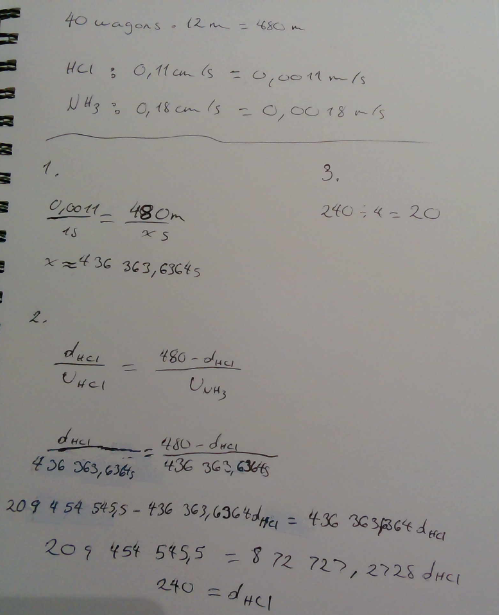 40 wagons · 12 m = 480 m
HCl : 0,11 cm/s = 0,0011 m/s
NH3 : 0,18 cm/s = 0,0018 m/s
1.
0,0011/1s = 480m/x s
x ≈ 436 363,6364s
2.
dHCl/UHCl = 480 - dHCl/UNH3
dHCl/436 363,6364s = 480 - dHCl/436 363,6364s
209 454 545,5 - 436 363,6364dHCl = 436 363,6364 dHCl
209 454 545,5 = 872 727,2728 dHCl
240 = dHCl
3.
240 ÷ 12 = 20